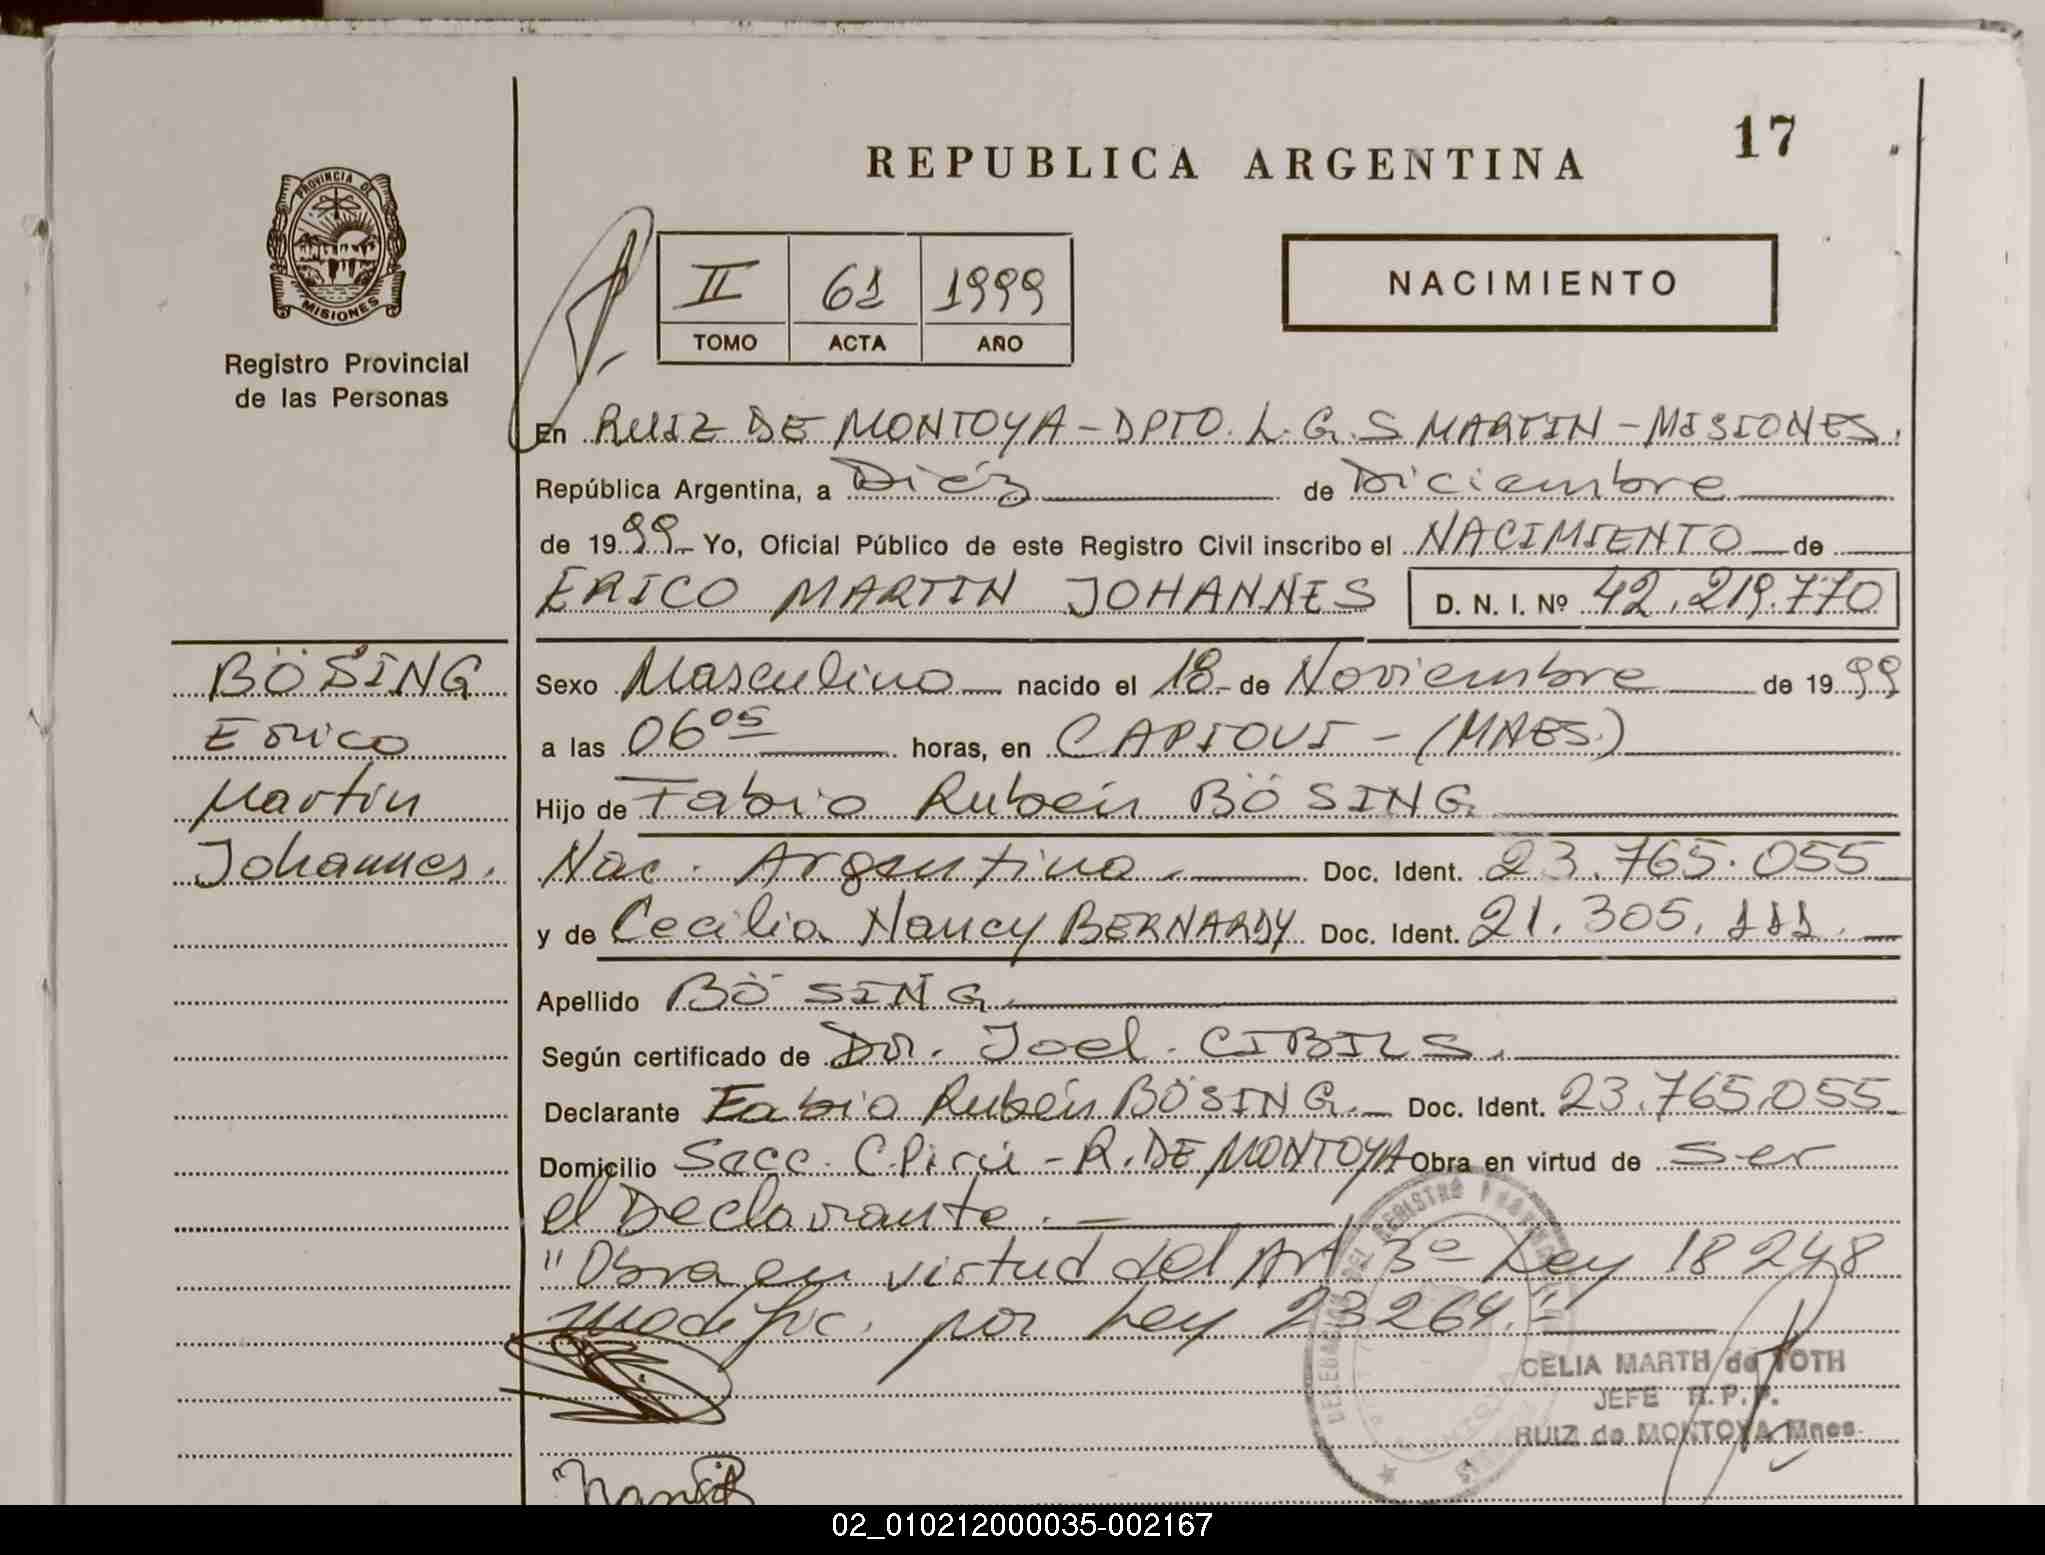 17
REPUBLICA ARGENTINA
PROVINCIA DE
MISIONES
Registro Provincial
de las Personas
II 61 1999
TOMO ACTA AÑO
NACIMIENTO
En RUIZ DE MONTOYA - DPTO. L. G. S MARTIN - MISIONES.
República Argentina, a Diéz de Diciembre
de 1999 Yo, Oficial Público de este Registro Civil inscribo el NACIMIENTO de
ERICO MARTIN JOHANNES D. N. I. Nº 42.219.770
BÖSING
Erico
Martin
Johannes.
Sexo Masculino nacido el 18 de Noviembre de 1999
a las 06 05 horas, en CAPIOVI - (MNES.)
Hijo de Fabio Rubén BÖSING
Nac. Argentina. Doc. Ident. 23.765.055
y de Cecilia Nancy BERNARDY Doc. Ident. 21.305.111.
Apellido BÖSING
Según certificado de Dr. Joel CIBILS.
Declarante Fabio Rubén BÖSING. Doc. Ident. 23.765.055
Domicilio Secc. C. Pirú - R. DE MONTOYA Obra en virtud de Ser
el Declarante. -
"Obra en virtud del Art 3º Ley 18248
modific. por Ley 23264."
CELIA MARTH de TOTH
JEFE R.P.P.
RUIZ de MONTOYA Mnes.
02_010212000035-002167